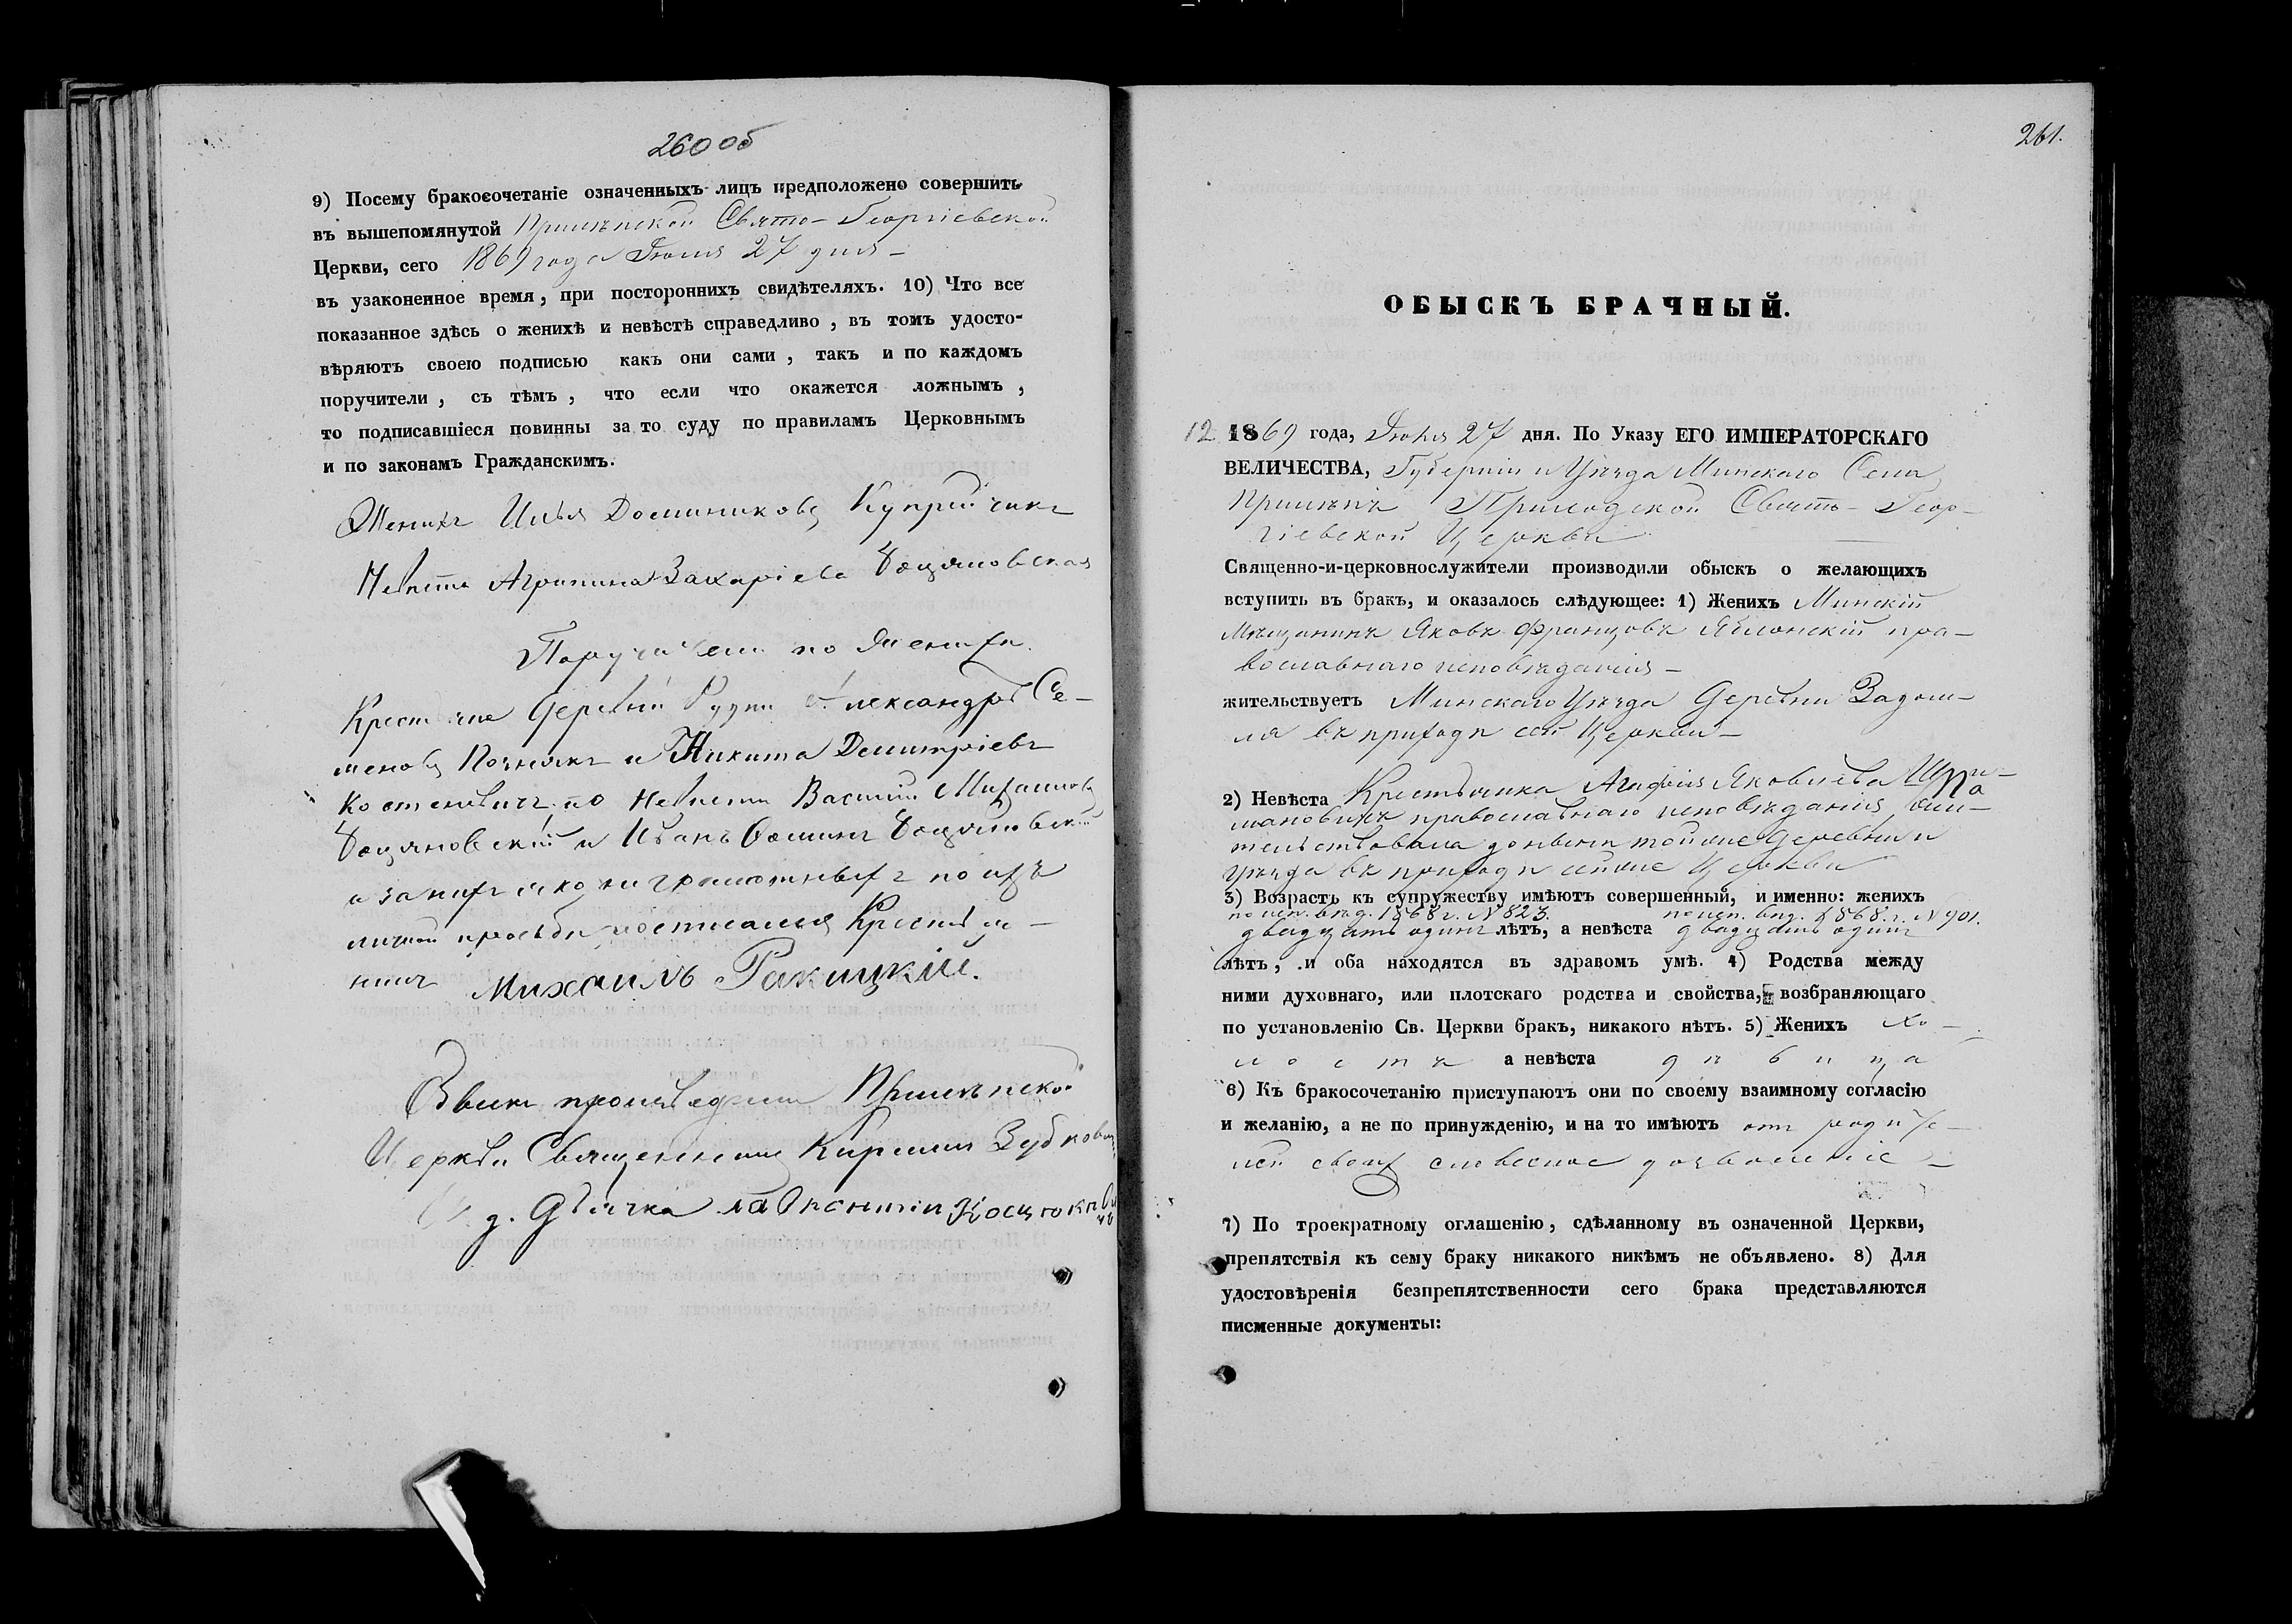 260 об
9) Посему бракосочетаніе означенныхъ лицъ предположено совершить
въ вышепомянутой Прилѣпской Свято-Георгіевской
Церкви, сего 1869 года Іюля 27 дня –
въ узаконенное время, при постороннихъ свидѣтеляхъ. 10) Что все
показанное здѣсь о женихѣ и невѣстѣ справедливо, въ томъ удосто-
вѣряютъ своею подписью какъ они сами, такъ и по каждомъ
поручители, съ тѣмъ, что если что окажется ложнымъ,
то подписавшіеся повинны за то суду по правиламъ Церковнымъ
и по законамъ Гражданскимъ.
Женихъ Илья Доминиковъ Купрійчикъ
Невѣста Агрипина Захаріева
Поручители по Женихѣ
Крестьяне Деревни Рудни Александръ Се-
меновъ Познякъ и Никита Димитріевъ
Костеневичъ по Невѣстѣ Василій Михайловъ
и Иванъ Ѳоминъ
а за нихъ яко неграмотныхъ по ихъ
личной просьбѣ росписался Крестья-
нинъ Михаилъ Ракицкій.
Обыскъ производили Прилѣпской
Церкви Священникъ Кириллъ
д. Дьячка
261.
ОБЫСКЪ БРАЧНЫЙ.
12 1869 года, Іюля 27 дня. По Указу ЕГО ИМПЕРАТОРСКАГО
ВЕЛИЧЕСТВА, Губерніи и Уѣзда Минскаго Села
Прилѣпъ Приходской Свято-Геор-
гіевской Церкви
Священно-и-церковнослужители производили обыскъ о желающихъ
вступить въ бракъ, и оказалось слѣдующее: 1) Женихъ Минскій
Мѣщанинъ Яковъ Францовъ Яблонскій пра-
вославнаго исповѣданія –
жительствуетъ Минскаго Уѣзда Деревни Задом-
ля въ приходѣ сей Церкви –
2) Невѣста Крестьянка Агафія Яковлева
православнаго исповѣданія, жи-
тельствовала донынѣ тойже Деревни и
уѣзда въ приходѣ сейже Церкви
3) Возрастъ къ супружеству имѣютъ совершенный, и именно: женихъ
по исп. вѣд. 1868 г. N 823. по исп. вѣд. 1868. г. N 901.
двадцать одинъ лѣтъ, а невѣста двадцать одинъ
лѣтъ, и оба находятся въ здравомъ умѣ. 4) Родства между
ними духовнаго, или плотскаго родства и свойства, возбраняющаго
по установленію Св. Церкви бракъ, никакого нѣтъ. 5) Женихъ хо-
лостъ а невѣста дѣвица
6) Къ бракосочетанію приступаютъ они по своему взаимному согласію
и желанію, а не по принужденію, и на то имѣютъ отъ родите-
лей своихъ словесное дозволеніе –
7) По троекратному оглашенію, сдѣланному въ означенной Церкви,
препятствія къ сему браку никакого никѣмъ не объявлено. 8) Для
удостовѣренія безпрепятственности сего брака представляются
писменные документы: